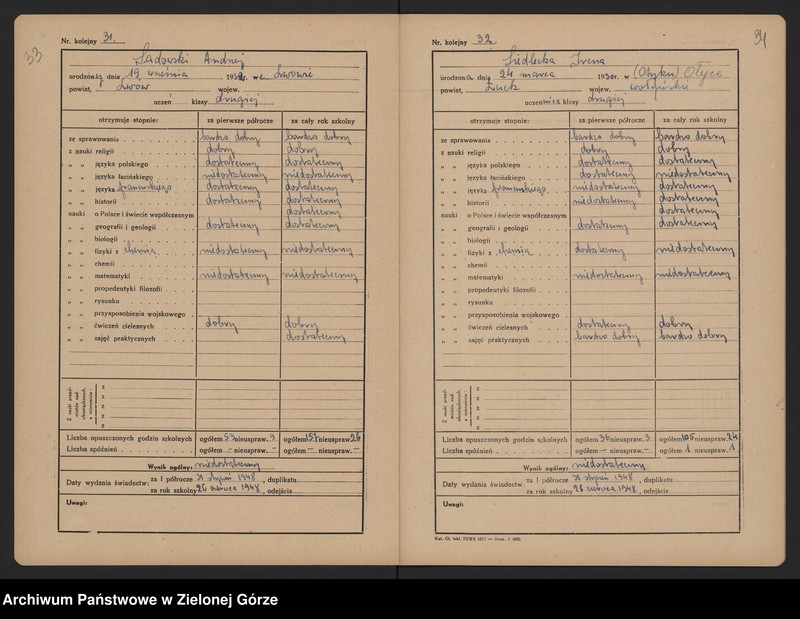 33
Nr. kolejny 31.
Sadowski Andrzej
urodzony dnia 19 września 1932 r. we Lwowie
powiat, Lwów wojew.
uczeń klasy drugiej
otrzymuje stopnie: za pierwsze półrocze za cały rok szkolny
ze sprawowania bardzo dobry bardzo dobry
z nauki religii dobry dobry
„ „ języka polskiego dostateczny dostateczny
„ „ języka łacińskiego niedostateczny niedostateczny
„ „ języka francuskiego dostateczny dostateczny
„ „ historii dostateczny dostateczny
nauki o Polsce i świecie współczesnym dostateczny
„ „ geografii i geologii dostateczny dostateczny
„ „ biologii
„ „ fizyki z chemią niedostateczny niedostateczny
„ „ chemii
„ „ matematyki niedostateczny niedostateczny
„ „ propedeutyki filozofii
„ „ rysunku
„ „ przysposobienia wojskowego
„ „ ćwiczeń cielesnych dobry dobry
„ „ zajęć praktycznych dostateczny
Liczba opuszczonych godzin szkolnych ogółem 53 nieuspraw. 9 ogółem 151 nieuspraw. 26
Liczba spóźnień ogółem – nieuspraw. – ogółem – nieuspraw. –
Wynik ogólny: niedostateczny
Daty wydania świadectw: za I półrocze 31 styczeń 1948, duplikatu
za rok szkolny 26 czerwca 1948, odejścia
Uwagi:
34
Nr. kolejny 32.
Siedlecka Irena
urodzona dnia 24 marca 1930 r. w (Ołyku) Ołyce
powiat, Łuck wojew. wołyńskie
uczennica klasy drugiej
otrzymuje stopnie: za pierwsze półrocze za cały rok szkolny
ze sprawowania bardzo dobry bardzo dobry
z nauki religii dobry dobry
„ „ języka polskiego dostateczny dostateczny
„ „ języka łacińskiego dostateczny niedostateczny
„ „ języka francuskiego niedostateczny dostateczny
„ „ historii niedostateczny dostateczny
nauki o Polsce i świecie współczesnym dostateczny
„ „ geografii i geologii dostateczny dostateczny
„ „ biologii
„ „ fizyki z chemią dostateczny niedostateczny
„ „ chemii
„ „ matematyki niedostateczny niedostateczny
„ „ propedeutyki filozofii
„ „ rysunku
„ „ przysposobienia wojskowego
„ „ ćwiczeń cielesnych dostateczny dobry
„ „ zajęć praktycznych bardzo dobry bardzo dobry
Liczba opuszczonych godzin szkolnych ogółem 36 nieuspraw. 3 ogółem 105 nieuspraw. 24
Liczba spóźnień ogółem – nieuspraw. – ogółem 1 nieuspraw. 1
Wynik ogólny: niedostateczny
Daty wydania świadectw: za I półrocze 31 styczeń 1948, duplikatu
za rok szkolny 26 czerwca 1948, odejścia
Uwagi:
Archiwum Państwowe w Zielonej Górze